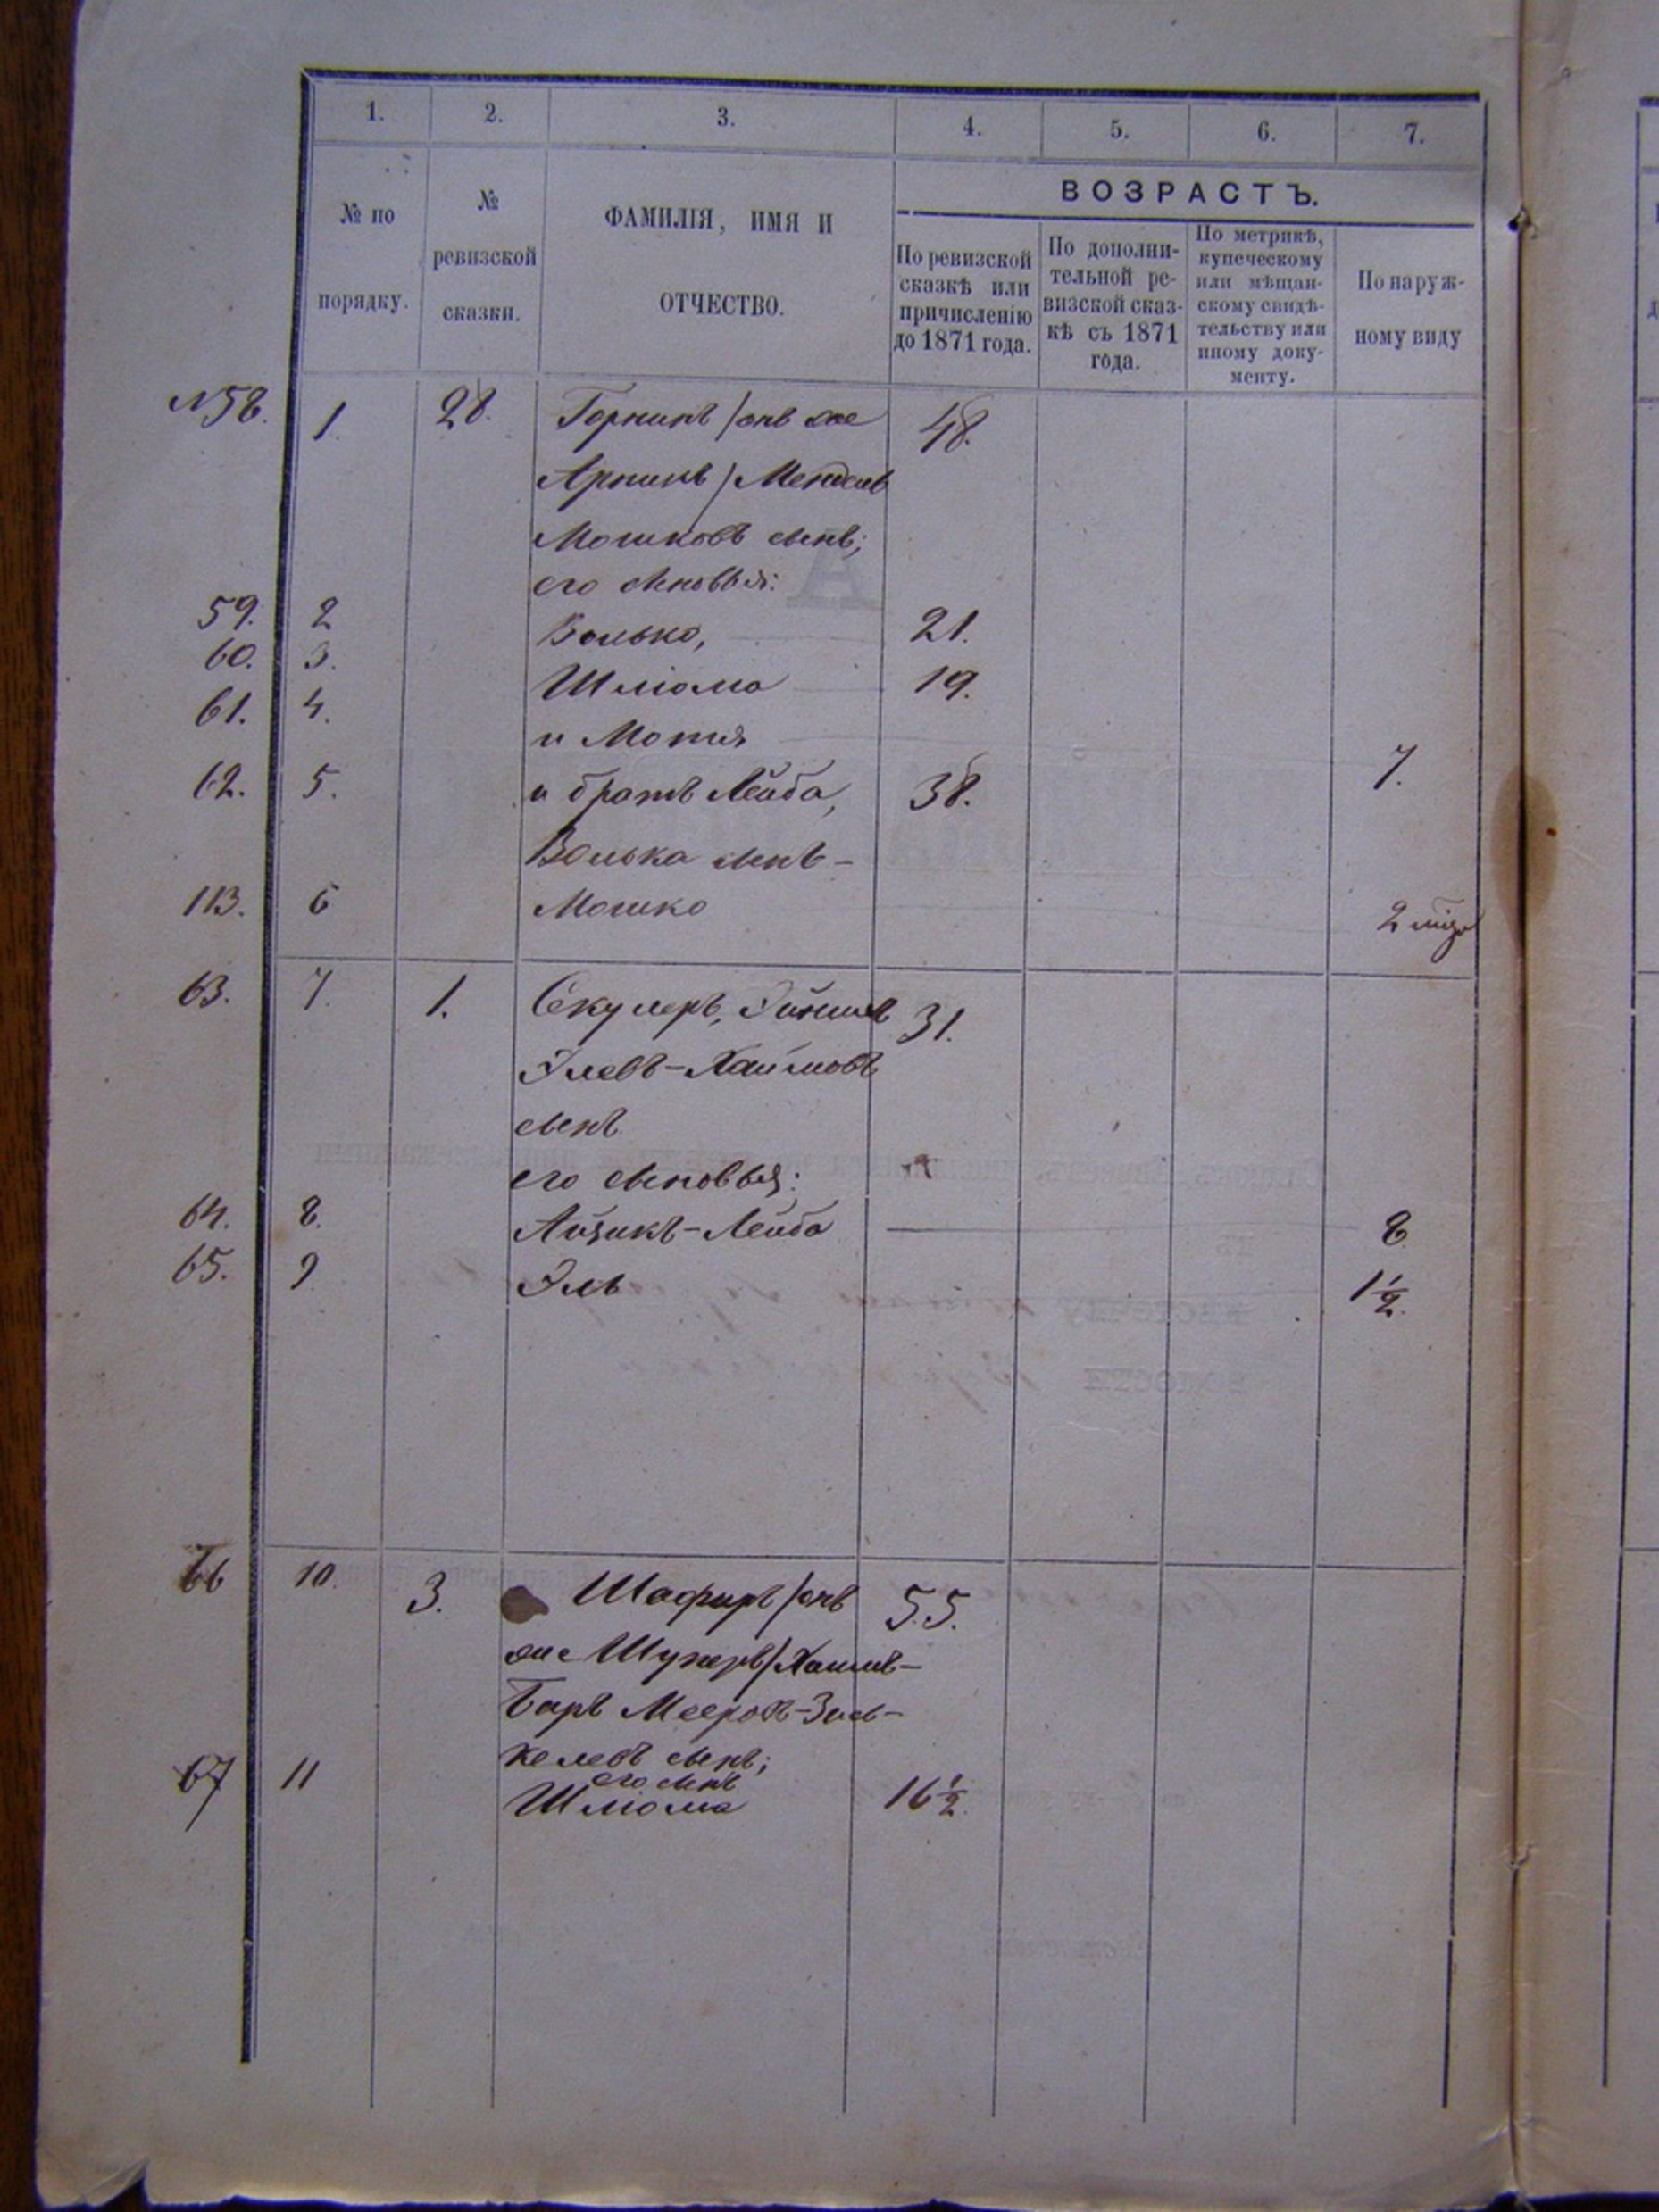 1. 2. 3. 4. 5. 6. 7.
ВОЗРАСТЪ.
№ по порядку.
№ ревизской сказки.
ФАМИЛІЯ, ИМЯ И ОТЧЕСТВО.
По ревизской сказкѣ или причисленію до 1871 года.
По дополнительной ревизской сказкѣ съ 1871 года.
По метрикѣ, купеческому или мѣщанскому свидѣтельству или иному документу.
По наружному виду
№58. 1. 28. Горникъ /онъ же 48.
Арникъ/ Мендель
Мошковъ сынъ;
его сыновья:
59. 2 Волько, 21.
60. 3. Шліома 19.
61. 4. и Мотя 7.
62. 5. и братъ Лейба, 38.
Волька сынъ-
113. 6 Мошко 2 мѣ
63. 7. 1. Секулеръ, 31.
Элевъ-Хаимовъ
сынъ
его сыновья:
64. 8. Айзикъ-Лейба 8
65. 9 Эль 1½.
66 10. 3. Шафиръ /онъ 55.
же Шукеръ/Хаимъ-
Беръ Мееровъ-Зись-
келевъ сынъ;
его сынъ
67 11 Шліома 16½.